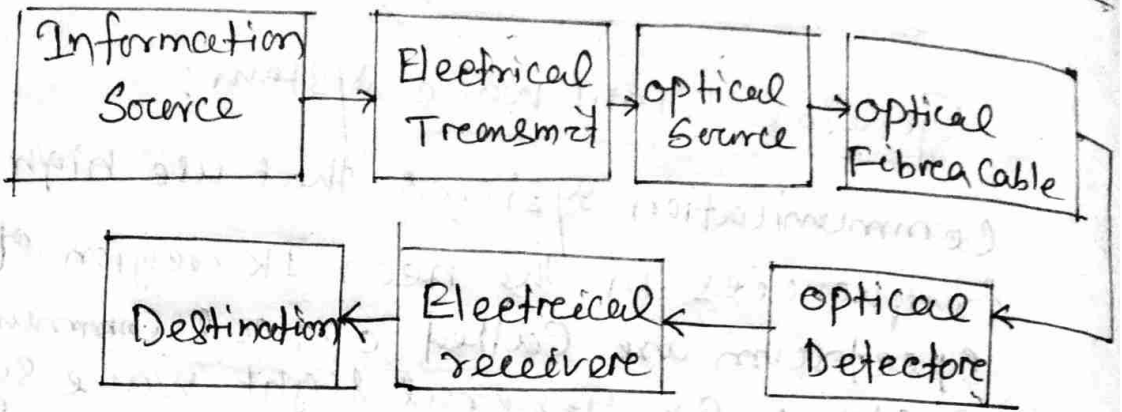 Information
Source
Electrical
Transmit
optical
Source
optical
Fibrea Cable
optical
Detectore
Electreical
receivere
Destination